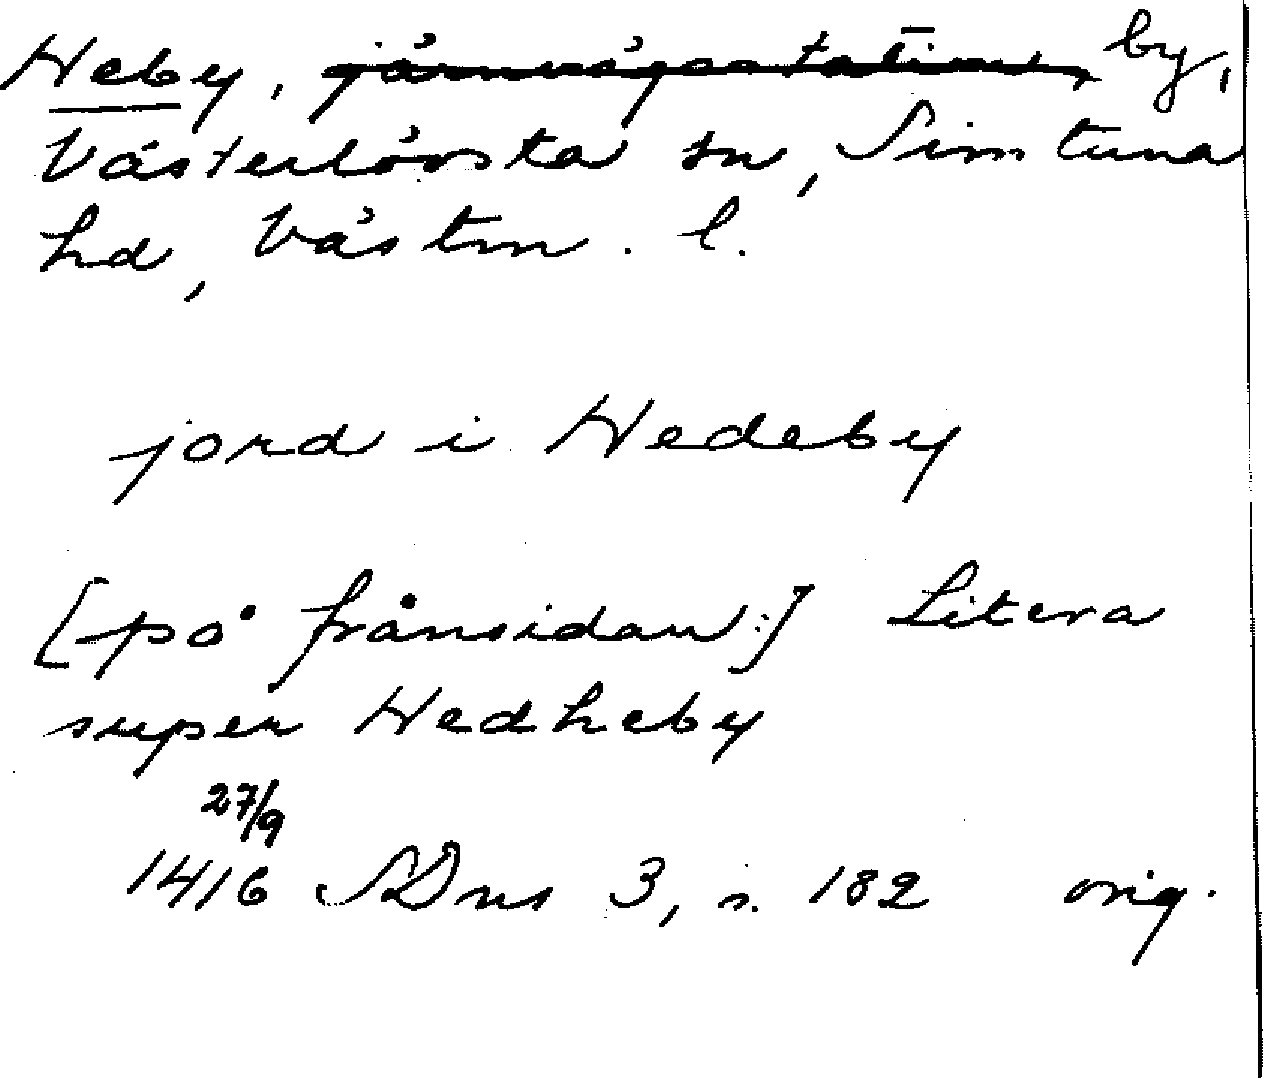 Heby, järnvägsstation, by,
Västerlövsta sn, Simtuna
hd, Västm. l.
jord i Hedeby
[på frånsidan:] Litera
super Hedheby
27/9
1416 SDns 3, s. 182 orig.